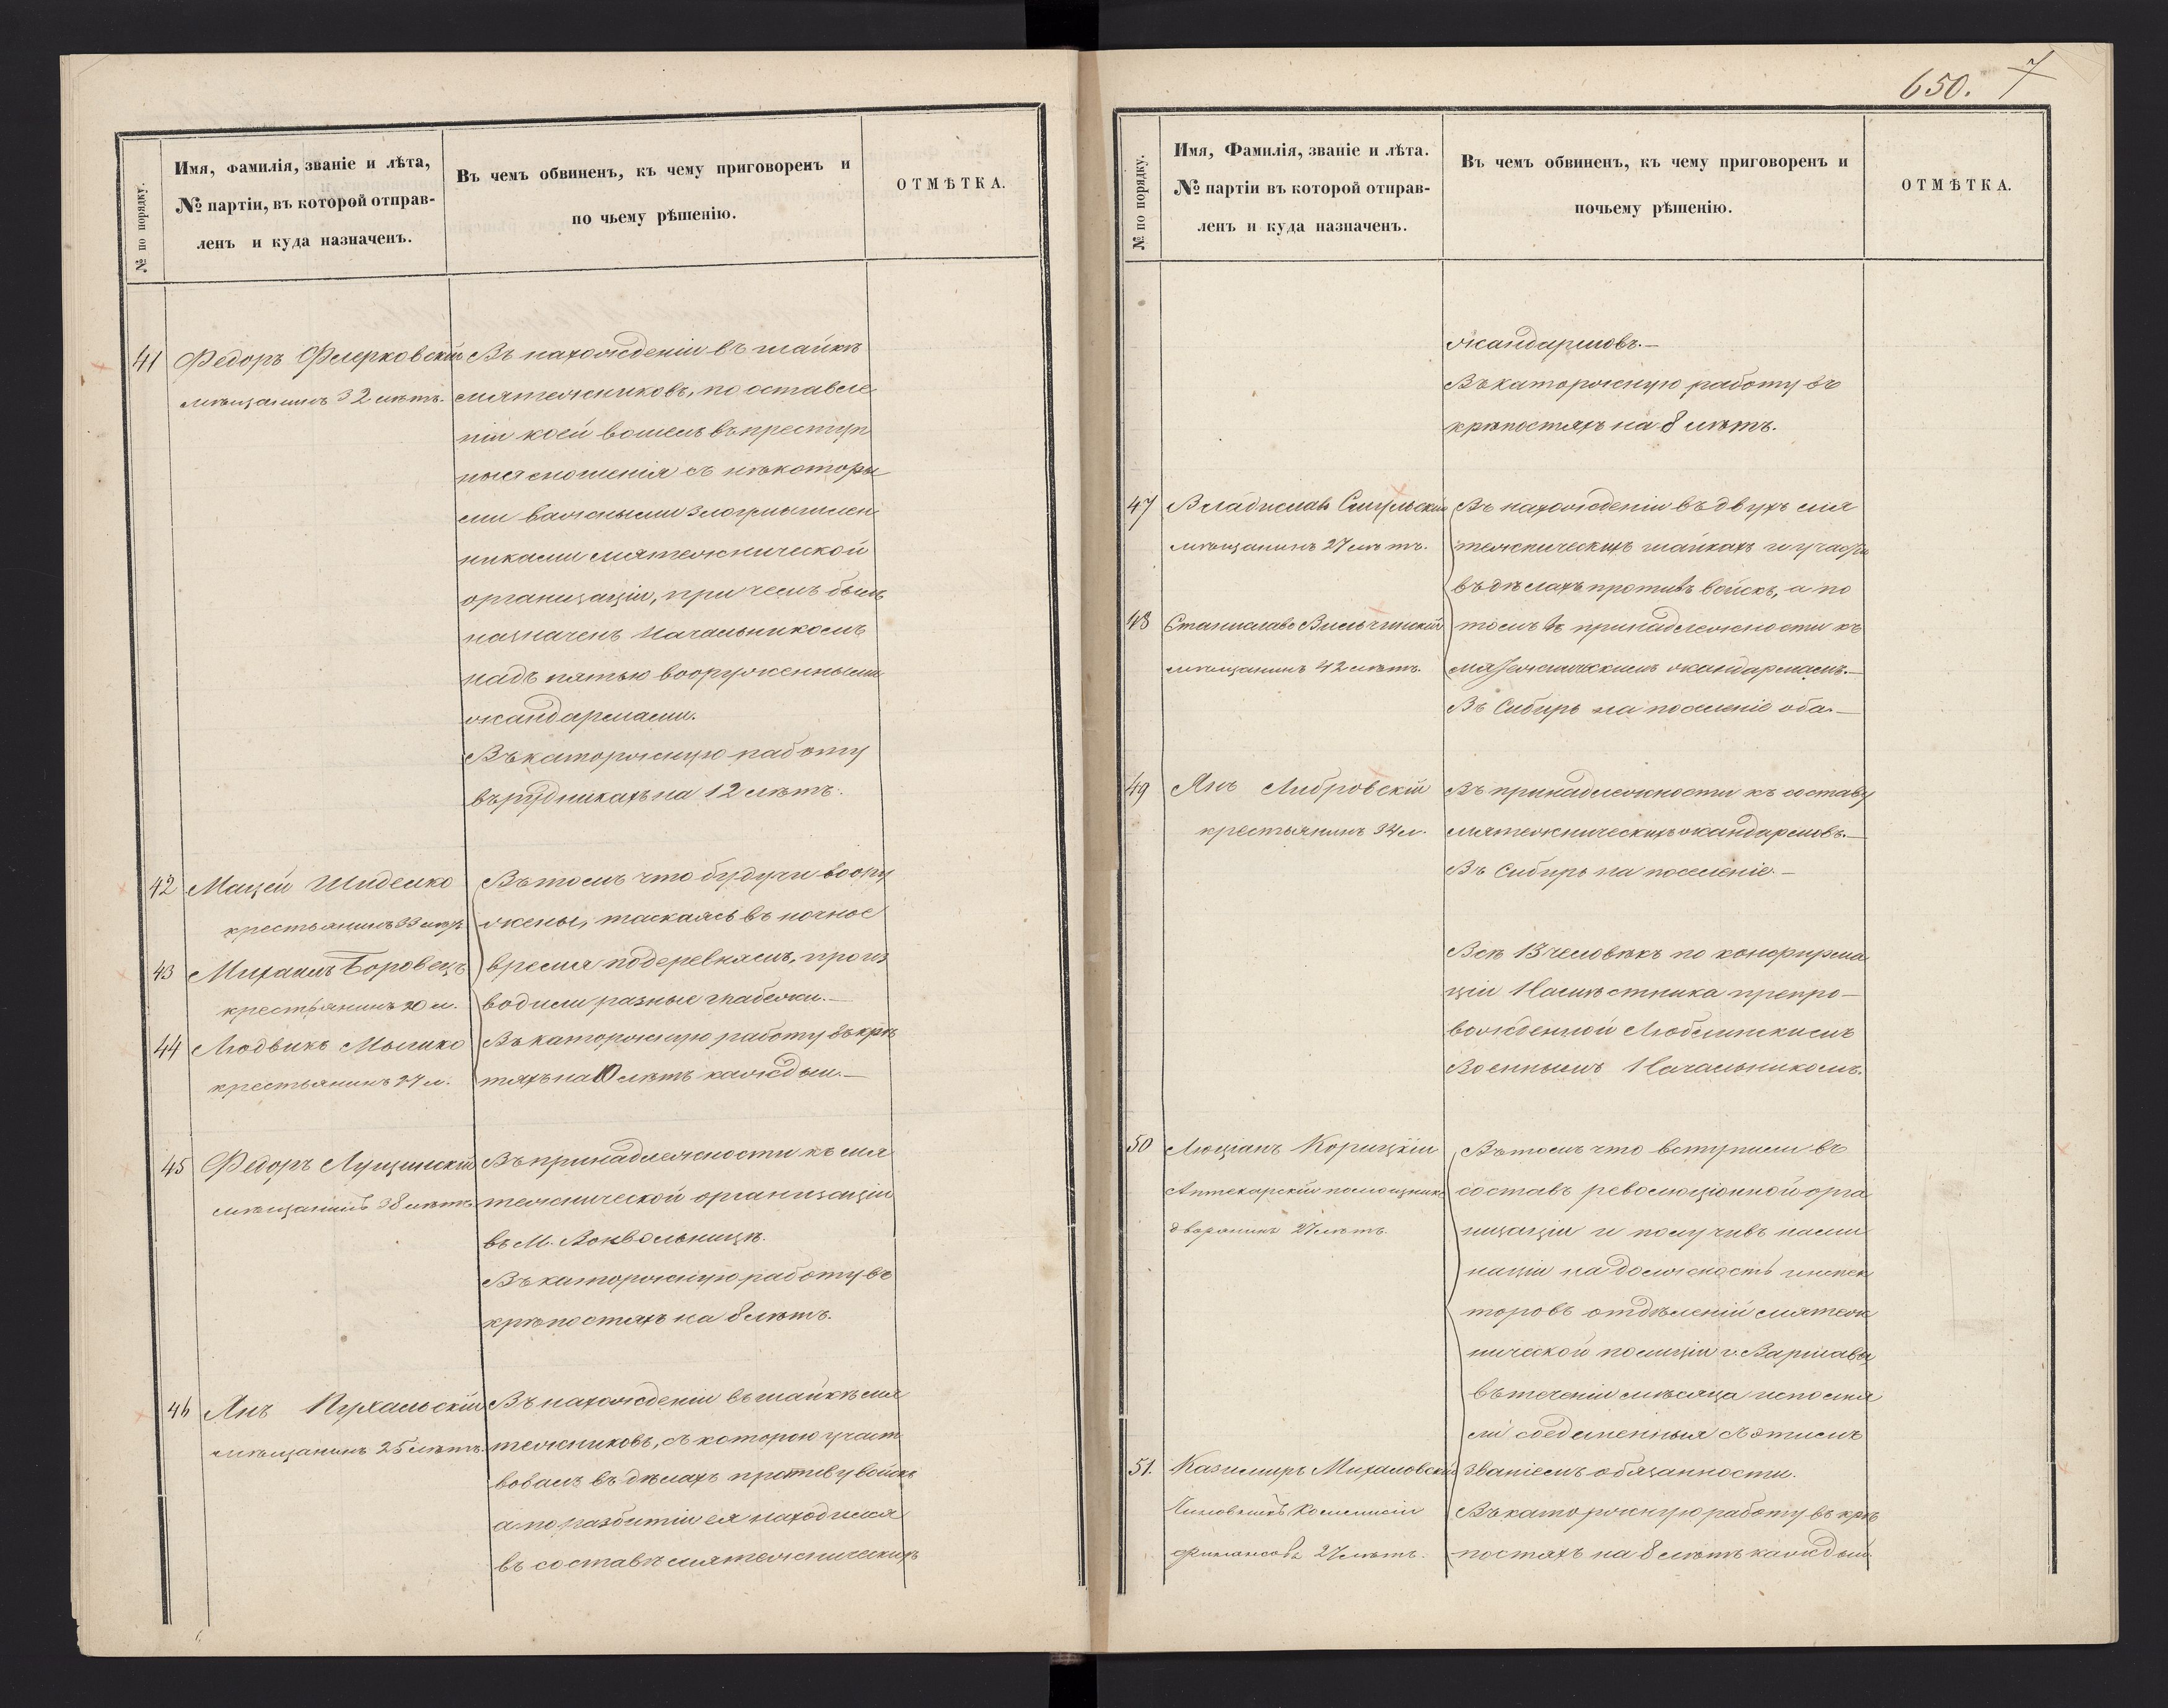 № по порядку.
Имя, фамилія, званіе и лѣта,
№ партіи, въ которой отправ-
ленъ и куда назначенъ.
Въ чемъ обвиненъ, къ чему приговоренъ и
по чьему рѣшенію.
ОТМѢТКА.
41 Федоръ Флерковскій
мѣщанинъ 32 лѣтъ.
Въ нахожденіи въ шайкѣ
мятежниковъ, по оставле
ніи коей вошелъ въ преступ
ныя сношенія съ нѣкоторы
ми важными злоумышлен
никами мятежнической
организаціи, при чемъ былъ
назначенъ Начальникомъ
надъ пятью вооруженными
жандармами.
Въ каторжную работу
въ рудникахъ на 12 лѣтъ.
42 Мацей Шиделко
крестьянинъ 33 лѣтъ
43 Михаилъ Боровецъ
крестьянинъ 20 л.
44 Людвикъ Малико
крестьянинъ 27 л.
Въ томъ что будучи воору
жены, таскаясь въ ночное
время по деревнямъ, произ
водили разные грабежи.—
Въ каторжную работу въ крѣ
тяхъ на 10 лѣтъ каждый.—
45 Федоръ Лущинскій
мѣщанинъ 38 лѣтъ
Въ принадлежности къ мя
тежнической организаціи
въ М. Конвольницѣ.
Въ каторжную работу въ
крѣпостяхъ на 8 лѣтъ.
46 Янъ Пухальскій
мѣщанинъ 25 лѣтъ.
Въ нахожденіи въ шайкѣ мя
тежниковъ, съ которою участ
вовалъ въ дѣлахъ противу войскъ
а по разбитіи ея находился
въ составѣ мятежническихъ
650. 7
№ по порядку.
Имя, Фамилія, званіе и лѣта.
№ партіи въ которой отправ-
ленъ и куда назначенъ.
Въ чемъ обвиненъ, къ чему приговоренъ и
почьему рѣшенію.
ОТМѢТКА.
жандармовъ.—
Въ каторжную работу въ
крѣпостяхъ на 8 лѣтъ.
47 Владиславъ Смульскій
мѣщанинъ 27 лѣтъ.
48 Станиславъ Вильчинскій
мѣщанинъ 42 лѣтъ.
Въ нахожденіи въ двухъ мя
тежническихъ шайкахъ и участіи
въ дѣлахъ противъ войскъ, а по
томъ въ принадлежности къ
мятежническимъ жандармамъ.—
Въ Сибирь на поселеніе оба.—
49 Янъ Либровскій
крестьянинъ 34 л.
Въ принадлежности къ составу
мятежническихъ жандармовъ.—
Въ Сибирь на поселеніе.—
Всѣ 13 человѣкъ по конфирма
ціи Намѣстника препро-
вожденной Люблинскимъ
Военнымъ Начальникомъ.
50 Люціанъ Корицкій
Аптекарскій помощникъ
дворянинъ 27 лѣтъ.
Въ томъ что вступили въ
составъ революціонной орга
низаціи и получивъ номи
націи на должность инспек
торовъ отдѣленій мятеж
нической полиціи г. Варшавы
въ теченіи мѣсяца исполня
ли соединенныя съ этимъ
51. Казимиръ Михаловскій
Чиновникъ Коммисіи
Финансовъ 27 лѣтъ.
званіемъ обязанности.
Въ каторжную работу въ крѣ
постяхъ на 8 лѣтъ каждый.